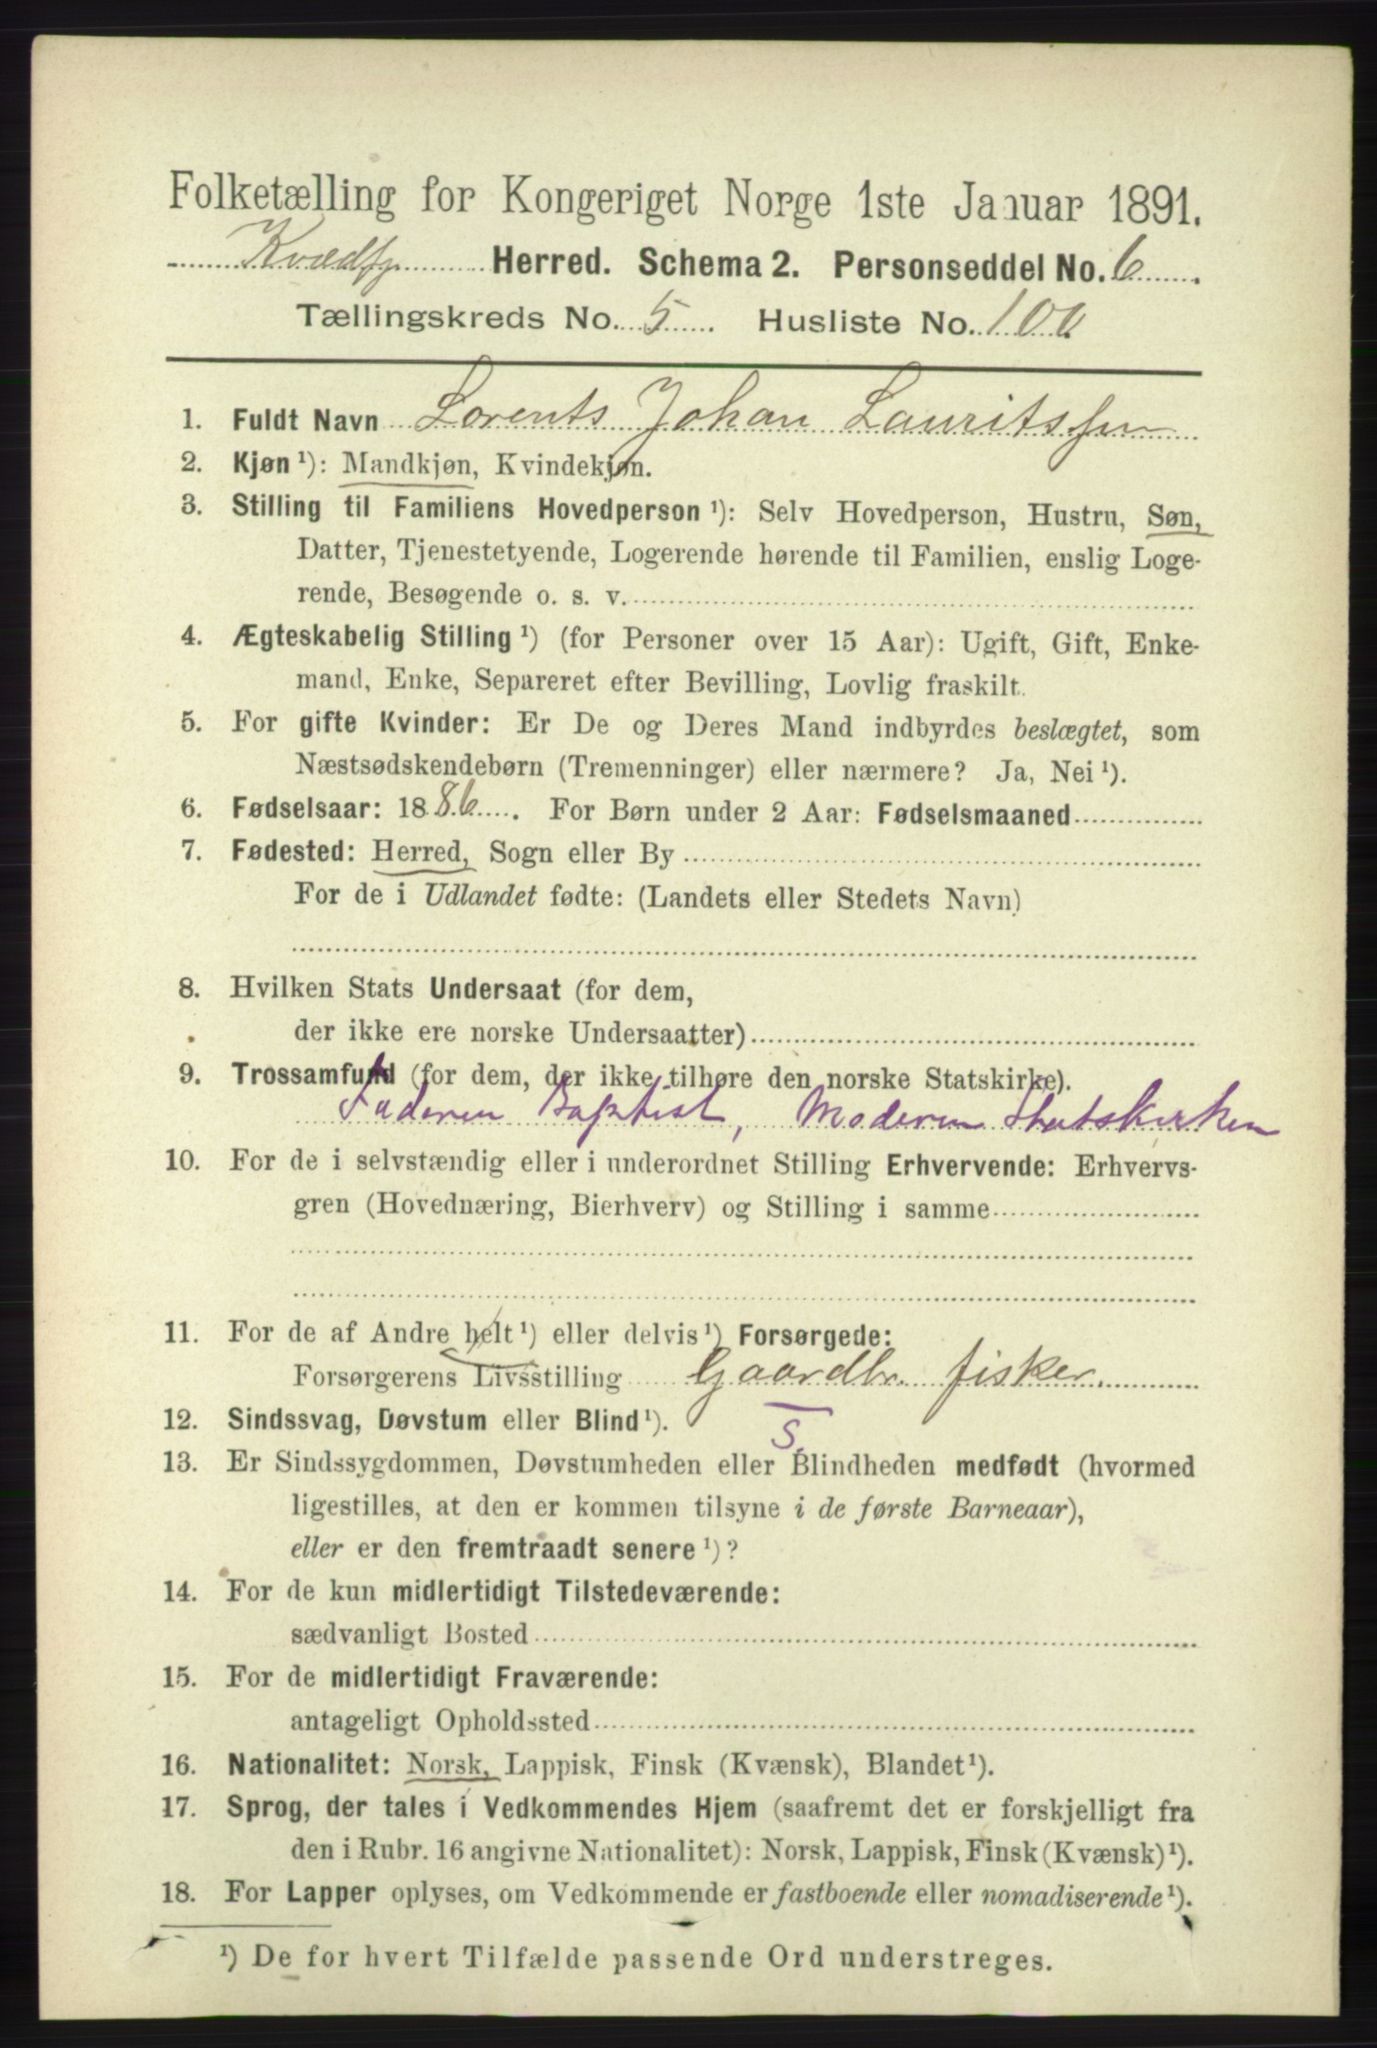 Folketælling for Kongeriget Norge 1ste Januar 1891.
Kvædfj Herred. Schema 2. Personseddel No. 6
Tællingskreds No. 5 Husliste No. 100
1. Fuldt Navn Lorents Johan Lauritssen
2. Kjøn ¹): Mandkjøn, Kvindekjøn.
3. Stilling til Familiens Hovedperson ¹): Selv Hovedperson, Hustru, Søn,
Datter, Tjenestetyende, Logerende hørende til Familien, enslig Loge-
rende, Besøgende o. s. v.
4. Ægteskabelig Stilling ¹) (for Personer over 15 Aar): Ugift, Gift, Enke-
mand, Enke, Separeret efter Bevilling, Lovlig fraskilt.
5. For gifte Kvinder: Er De og Deres Mand indbyrdes beslægtet, som
Næstsødskendebørn (Tremenninger) eller nærmere? Ja, Nei ¹).
6. Fødselsaar: 1886. For Børn under 2 Aar: Fødselsmaaned
7. Fødested: Herred, Sogn eller By
For de i Udlandet fødte: (Landets eller Stedets Navn)
8. Hvilken Stats Undersaat (for dem,
der ikke ere norske Undersaatter)
9. Trossamfund (for dem, der ikke tilhøre den norske Statskirke).
Faderen Baptist, Moderen Statskirken
10. For de i selvstændig eller i underordnet Stilling Erhvervende: Erhvervs-
gren (Hovednæring, Bierhverv) og Stilling i samme
11. For de af Andre helt ¹) eller delvis ¹) Forsørgede:
Forsørgerens Livsstilling Gaardbr. fisker.
12. Sindssvag, Døvstum eller Blind ¹). S.
13. Er Sindssygdommen, Døvstumheden eller Blindheden medfødt (hvormed
ligestilles, at den er kommen tilsyne i de første Barneaar),
eller er den fremtraadt senere ¹)?
14. For de kun midlertidigt Tilstedeværende:
sædvanligt Bosted
15. For de midlertidigt Fraværende:
antageligt Opholdssted
16. Nationalitet: Norsk, Lappisk, Finsk (Kvænsk), Blandet ¹).
17. Sprog, der tales i Vedkommendes Hjem (saafremt det er forskjelligt fra
den i Rubr. 16 angivne Nationalitet): Norsk, Lappisk, Finsk (Kvænsk) ¹).
18. For Lapper oplyses, om Vedkommende er fastboende eller nomadiserende ¹).
¹) De for hvert Tilfælde passende Ord understreges.